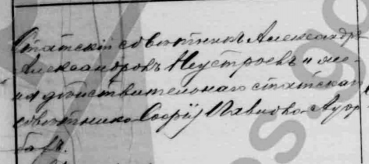 Статскій совѣтникъ Александръ
Александровъ Неустроевъ и же-
на дѣйствительнаго статскаго
совѣтника Софія Павлова